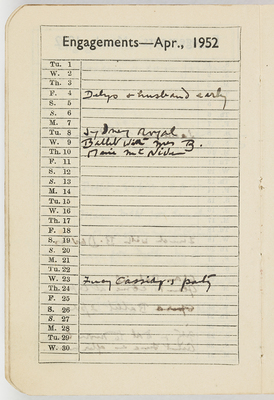 Engagements—Apr., 1952
Tu. 1
W. 2
Th. 3
F. 4 Delys & husband early
S. 5
S. 6
M. 7
Tu. 8 Sydney Royal.
W. 9 Ballet with Mrs B.
Th. 10
F. 11
S. 12
S. 13
M. 14
Tu. 15
W. 16
Th. 17
F. 18
S. 19
S. 20
M. 21
Tu. 22
W. 23 Cassidy's party
Th. 24
F. 25
S. 26
S. 27
M. 28
Tu. 29
W. 30